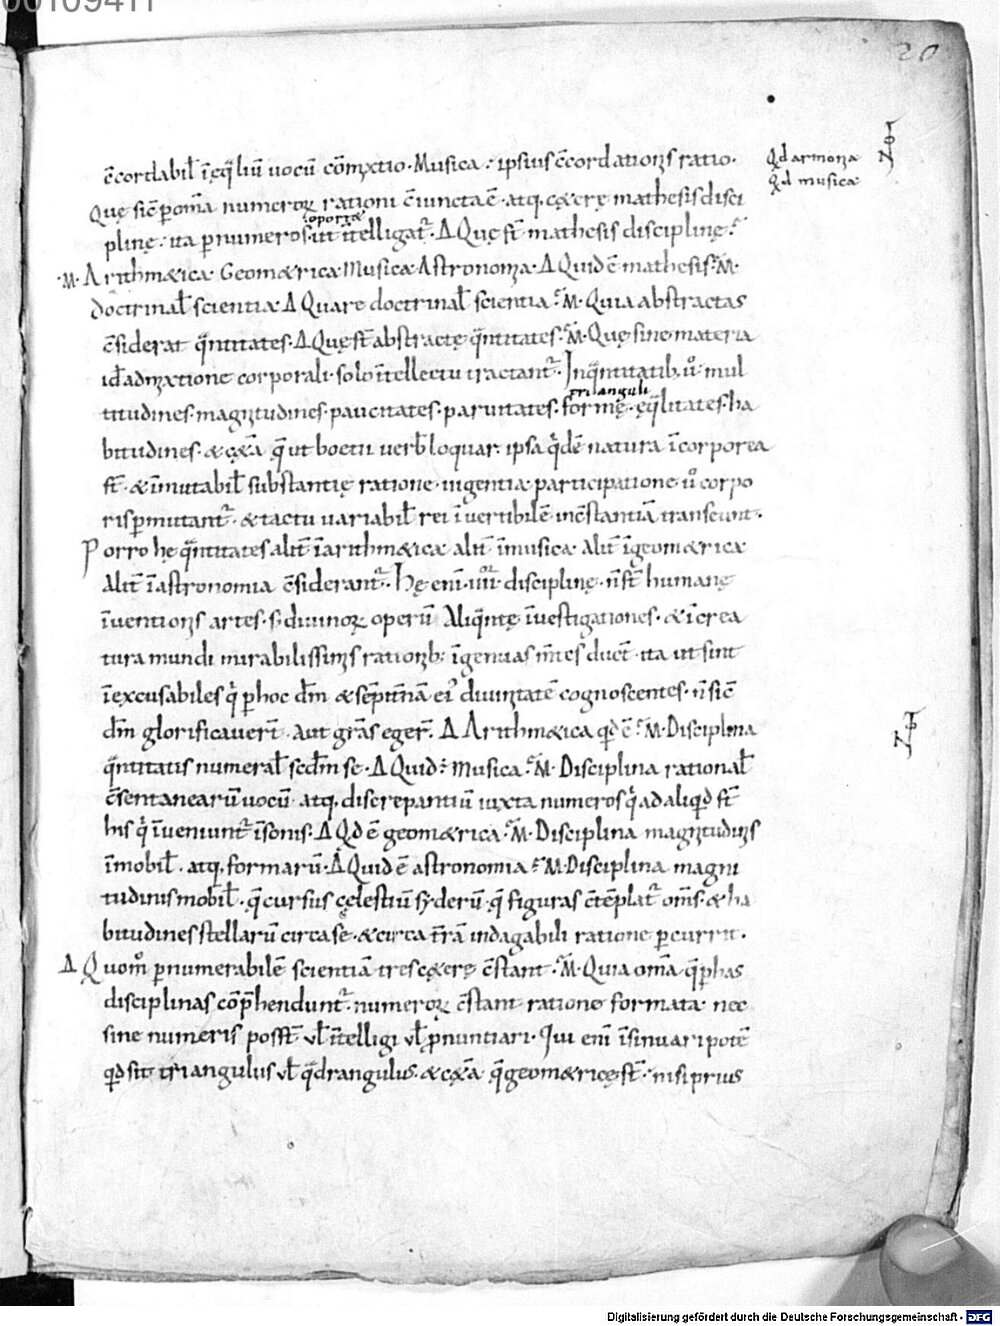 00109411
20
c̄cordabil̄ īęq̄liū uocū cōmixtio · Musica : ipsius c̄cordationis ratio ·
Qd armonia
Qd musica
Not
Quę sic̄ p om̄a numeroꝝ rationi c̄iuncta ē · atq; cęterę mathesis disci
oportet
plinę : ita p numeros · ut ītelligat᷑ · Δ Quę st̄ mathesis disciplinę ?
· M · Arithmetica Geometrica Musica Astronomia · Δ Quid ē mathesis ? M̄ ·
doctrinal̄ scientia Δ Quare doctrinal̄ scientia ? M̄ · Quia abstractas
c̄siderat q̄ntitates · Δ Quę st̄ abstractę q̄ntitates ? M̄ · Quę sine materia
id ē admixtione corporali · solo ītellectu tractant᷑ · In q̄ntitatib; ū · mul
trianguli
titudines · magnitudines · paucitates · paruitates · formę · ęq̄litates · ha
bitudines · & cęt̄a q̄ ut boetii uerb̄ loquar : ipsa q̇dē natura īcorporea
st̄ · & īmutabil̄ substantię ratione · uigentia · participatione ū corpo
ris pmutant᷑ · & tactu uariabil̄ rei ī uertibilē inc̄stantiā transeunt ·
Porro hę q̄ntitates alit̄ ī arithmetica · alit̄ ī musica · alit̄ ī geometrica
Alit̄ ī astronomia c̄siderant᷑ · Hę eni · iiiior · disciplinę · n̄ st̄ humanę
īuentionis artes · s; diuinoꝝ operū Aliq̄ntę īuestigationes · & ī crea
tura mundi mirabilissimis rationib; īgenuas m̄tes duct̄ · ita ut sint
īexcusabiles q̇ p hoc dm̄ & sēptn̄ā ei᷒ diuinitatē cognoscentes · n̄ sic̄
dm̄ glorificauer̄t · Aut gr̄as eger̄ · Δ Arithmetica qd ē ? M̄ · Disciplina
Not
q̄ntitatis numeral̄ scdm̄ se · Δ Quid : musica ? M̄ · Disciplina rational̄
c̄sentanearū uocū · atq; discrepantiū iuxta numeros q̇ ad aliqd st̄
his q̇ īueniunt᷑ ī sonis · Δ Qd ē geometrica ? M̄ · Disciplina magnitudinis
īmobil̄ · atq; formarū · Δ Quid ē astronomia ? M̄ · Disciplina magni
tudinis mobil̄ · q̄ cursus cęlestiū syderū · q̄ figuras c̄tēplat᷑ om̄s · & ha
bitudines stellarū circa se · & circa t̄rā indagabili ratione pcurrit ·
Δ Quom̊ p numerabilē scientiā tres cęterę c̄stant · M̄ · Quia om̄a q̄ p has
disciplinas cōp̄hendunt᷑ · numeroꝝ c̄stant ratione formata · nec
sine numeris posst̄ ul̄ ītelligi ul̄ p̄nuntiari · eni īsinuari potē
qd sit triangulus ul̄ q̄drangulus · & cęt̄a q̄ geometricę st̄ · nisi prius
Digitalisierung gefördert durch die Deutsche Forschungsgemeinschaft - DFG